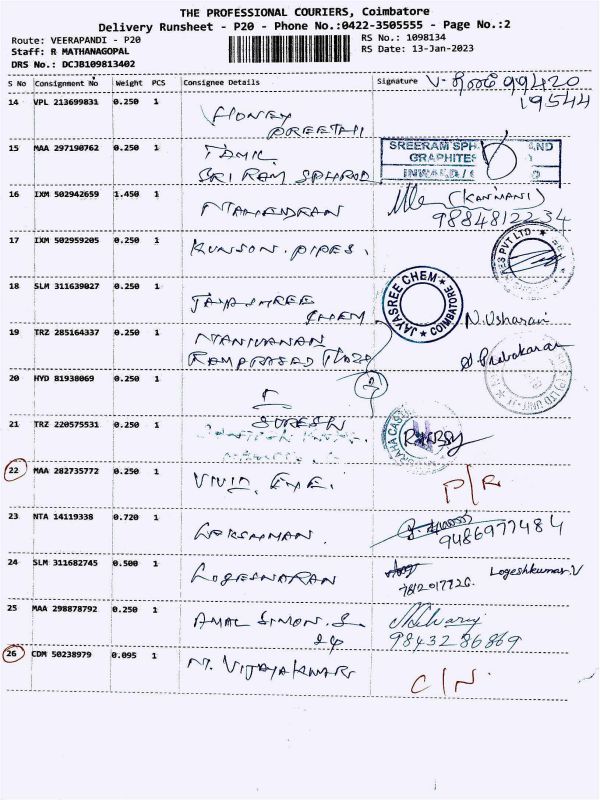 THE PROFESSIONAL COURIERS, Coimbatore
Delivery Runsheet - P20 - Phone No.:0422-3505555 - Page No.:2
Route: VEERAPANDI - P20
Staff: R MATHANAGOPAL
DRS No.: DCJB109813402
RS No.: 1098134
RS Date: 13-Jan-2023
S No Consignment No Weight PCS Consignee Details Signature
99420
19544
14 VPL 213699831 0.250 1 HONEY
PREETHI
15 MAA 297190762 0.250 1 TAMIL
SRI RAM SPHROD
SREERAM SPH ND
GRAPHITES
INWARD
16 IXM 502942659 1.450 1 (KANMANI)
9884812234
17 IXM 502959205 0.250 1 KUNSON. PIPES.
RES PVT LTD
18 SLM 311639027 0.250 1 JAYASHREE
CHEM
JAYASREE CHEM COIMBATORE
N. Usharani
19 TRZ 285164337 0.250 1 MANIVANAN
RAMPRASAD
S Prabakaran
20 HYD 81938069 0.250 1
21 TRZ 220575531 0.250 1 SURESH
22 MAA 282735772 0.250 1 VIVID. EYE. P/R
23 NTA 14119338 0.720 1 LAKSHMAN.
9486977484
24 SLM 311682745 0.500 1 LOGESWARAN Logeshkumar.V
25 MAA 298878792 0.250 1 AMAL SIMON.
9843286869
26 CDM 50238979 0.095 1 M. VIJAYAKUMAR C/N